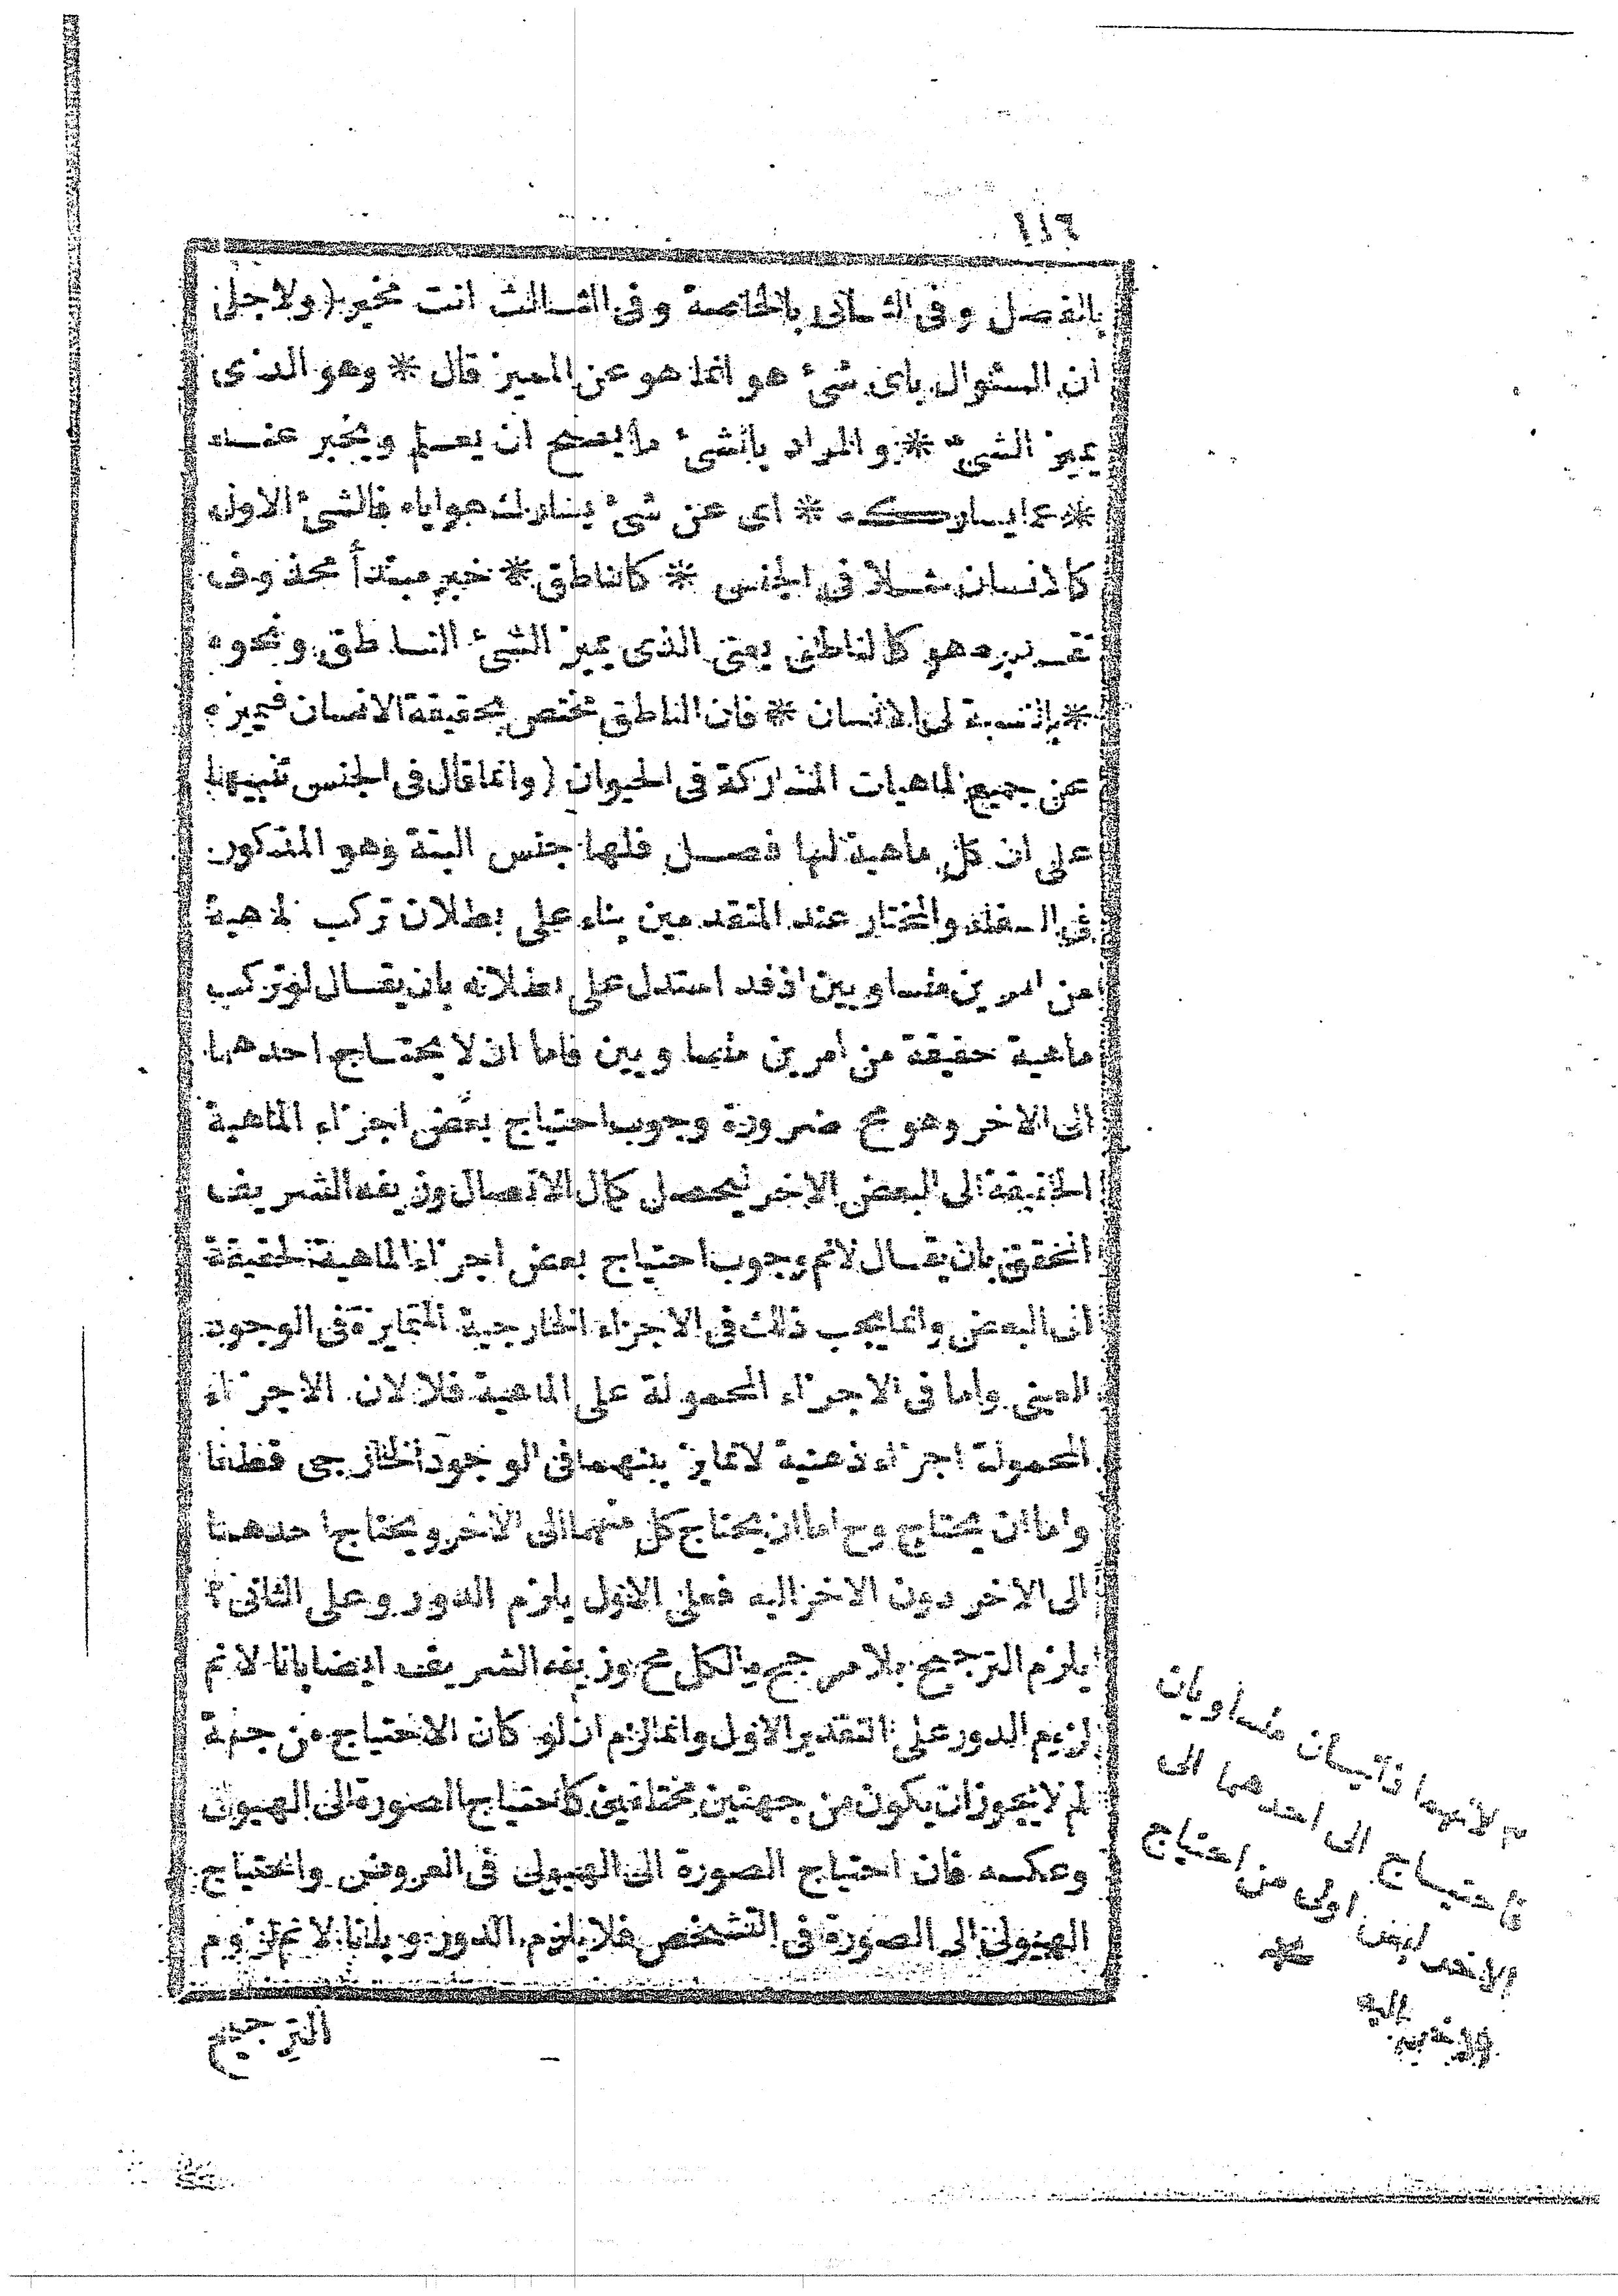 ١١٦
بالفصل وفى الثانى بالخاصة وفى الثالث انت مخير (ولاجل
ان السئوال باى شئ هو انما هو عن المميز قال * وهو الذى
يميز الشئ * والمراد بالشئ ما يصح ان يعلم ويخبر عنه
* عما يشاركه * اى عن شئ يشارك هو اياه فالشئ الاول
كالانسان مثلا فى الجنس * كالناطق * خبر مبتدأ محذوف
تقديره هو كالناطق يعنى الذى يميز الشئ الناطق ونحوه
* بالنسبة الى الانسان * فان الناطق مختص بحقيقة الانسان فيميزه
عن جميع الماهيات المشاركة فى الحيوان (وانما قال فى الجنس تنبيها
على ان كل ماهية لها فصل فلها جنس البتة وهو المذكور
فى والمختار عند المتقدمين بناء على بطلان تركب الماهية
من امرين متساويين اذ قد استدل على بطلانه بان يقال لو تركب
ماهية حقيقة من امرين متساويين فاما ان لا يحتاج احدهما
الى الاخر وهو مح ضرورة وجوب احتياج بعض اجزاء الماهية
الحقيقة الى البعض الاخر ليحصل كمال الاتصال وزيفه الشريف
المحقق بان يقال لانم وجوب احتياج بعض اجزاء الماهية الحقيقة
الى البعض وانما يجب ذلك فى الاجزاء الخارجية المتمايزة فى الوجود
العينى واما فى الاجزاء المحمولة على الماهية فلا لان الاجزاء
المحمولة اجزاء ذهنية لا تمايز بينهما فى الوجود الخارجى قطعا
واما ان يحتاج وح اما ان يحتاج كل منهما الى الاخر ويحتاج احدهما
الى الاخر دون الاخر اليه فعلى الاول يلزم الدور وعلى الثانى ٢
يلزم الترجيح بلا مرجح والكل مح وزيفه الشريف ايضا بانا لا نم
لزوم الدور على التقدير الاول وانما لزم ان لو كان الاحتياج من جهة
لم لا يجوز ان يكون من جهتين مختلفتين كاحتياج الصورة الى الهيولى
وعكسه فان احتياج الصورة الى الهيولى فى العروض واحتياج
الهيولى الى الصورة فى التشخص فلا يلزم الدور وبانا لا نم لزوم
الترجيح
٢ لانهما ذاتيان متساويان
فاحتياج الى احدهما الى
الاخر ليس اولى من احتياج
الاخر اليه